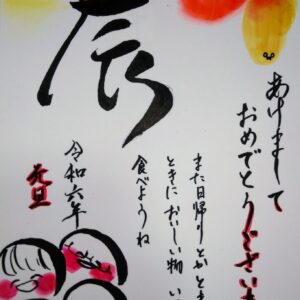 辰
あけまして
おめでとうございま
また日帰りとかとま
ときにおいしい物 い
食べようね
令和六年
元旦